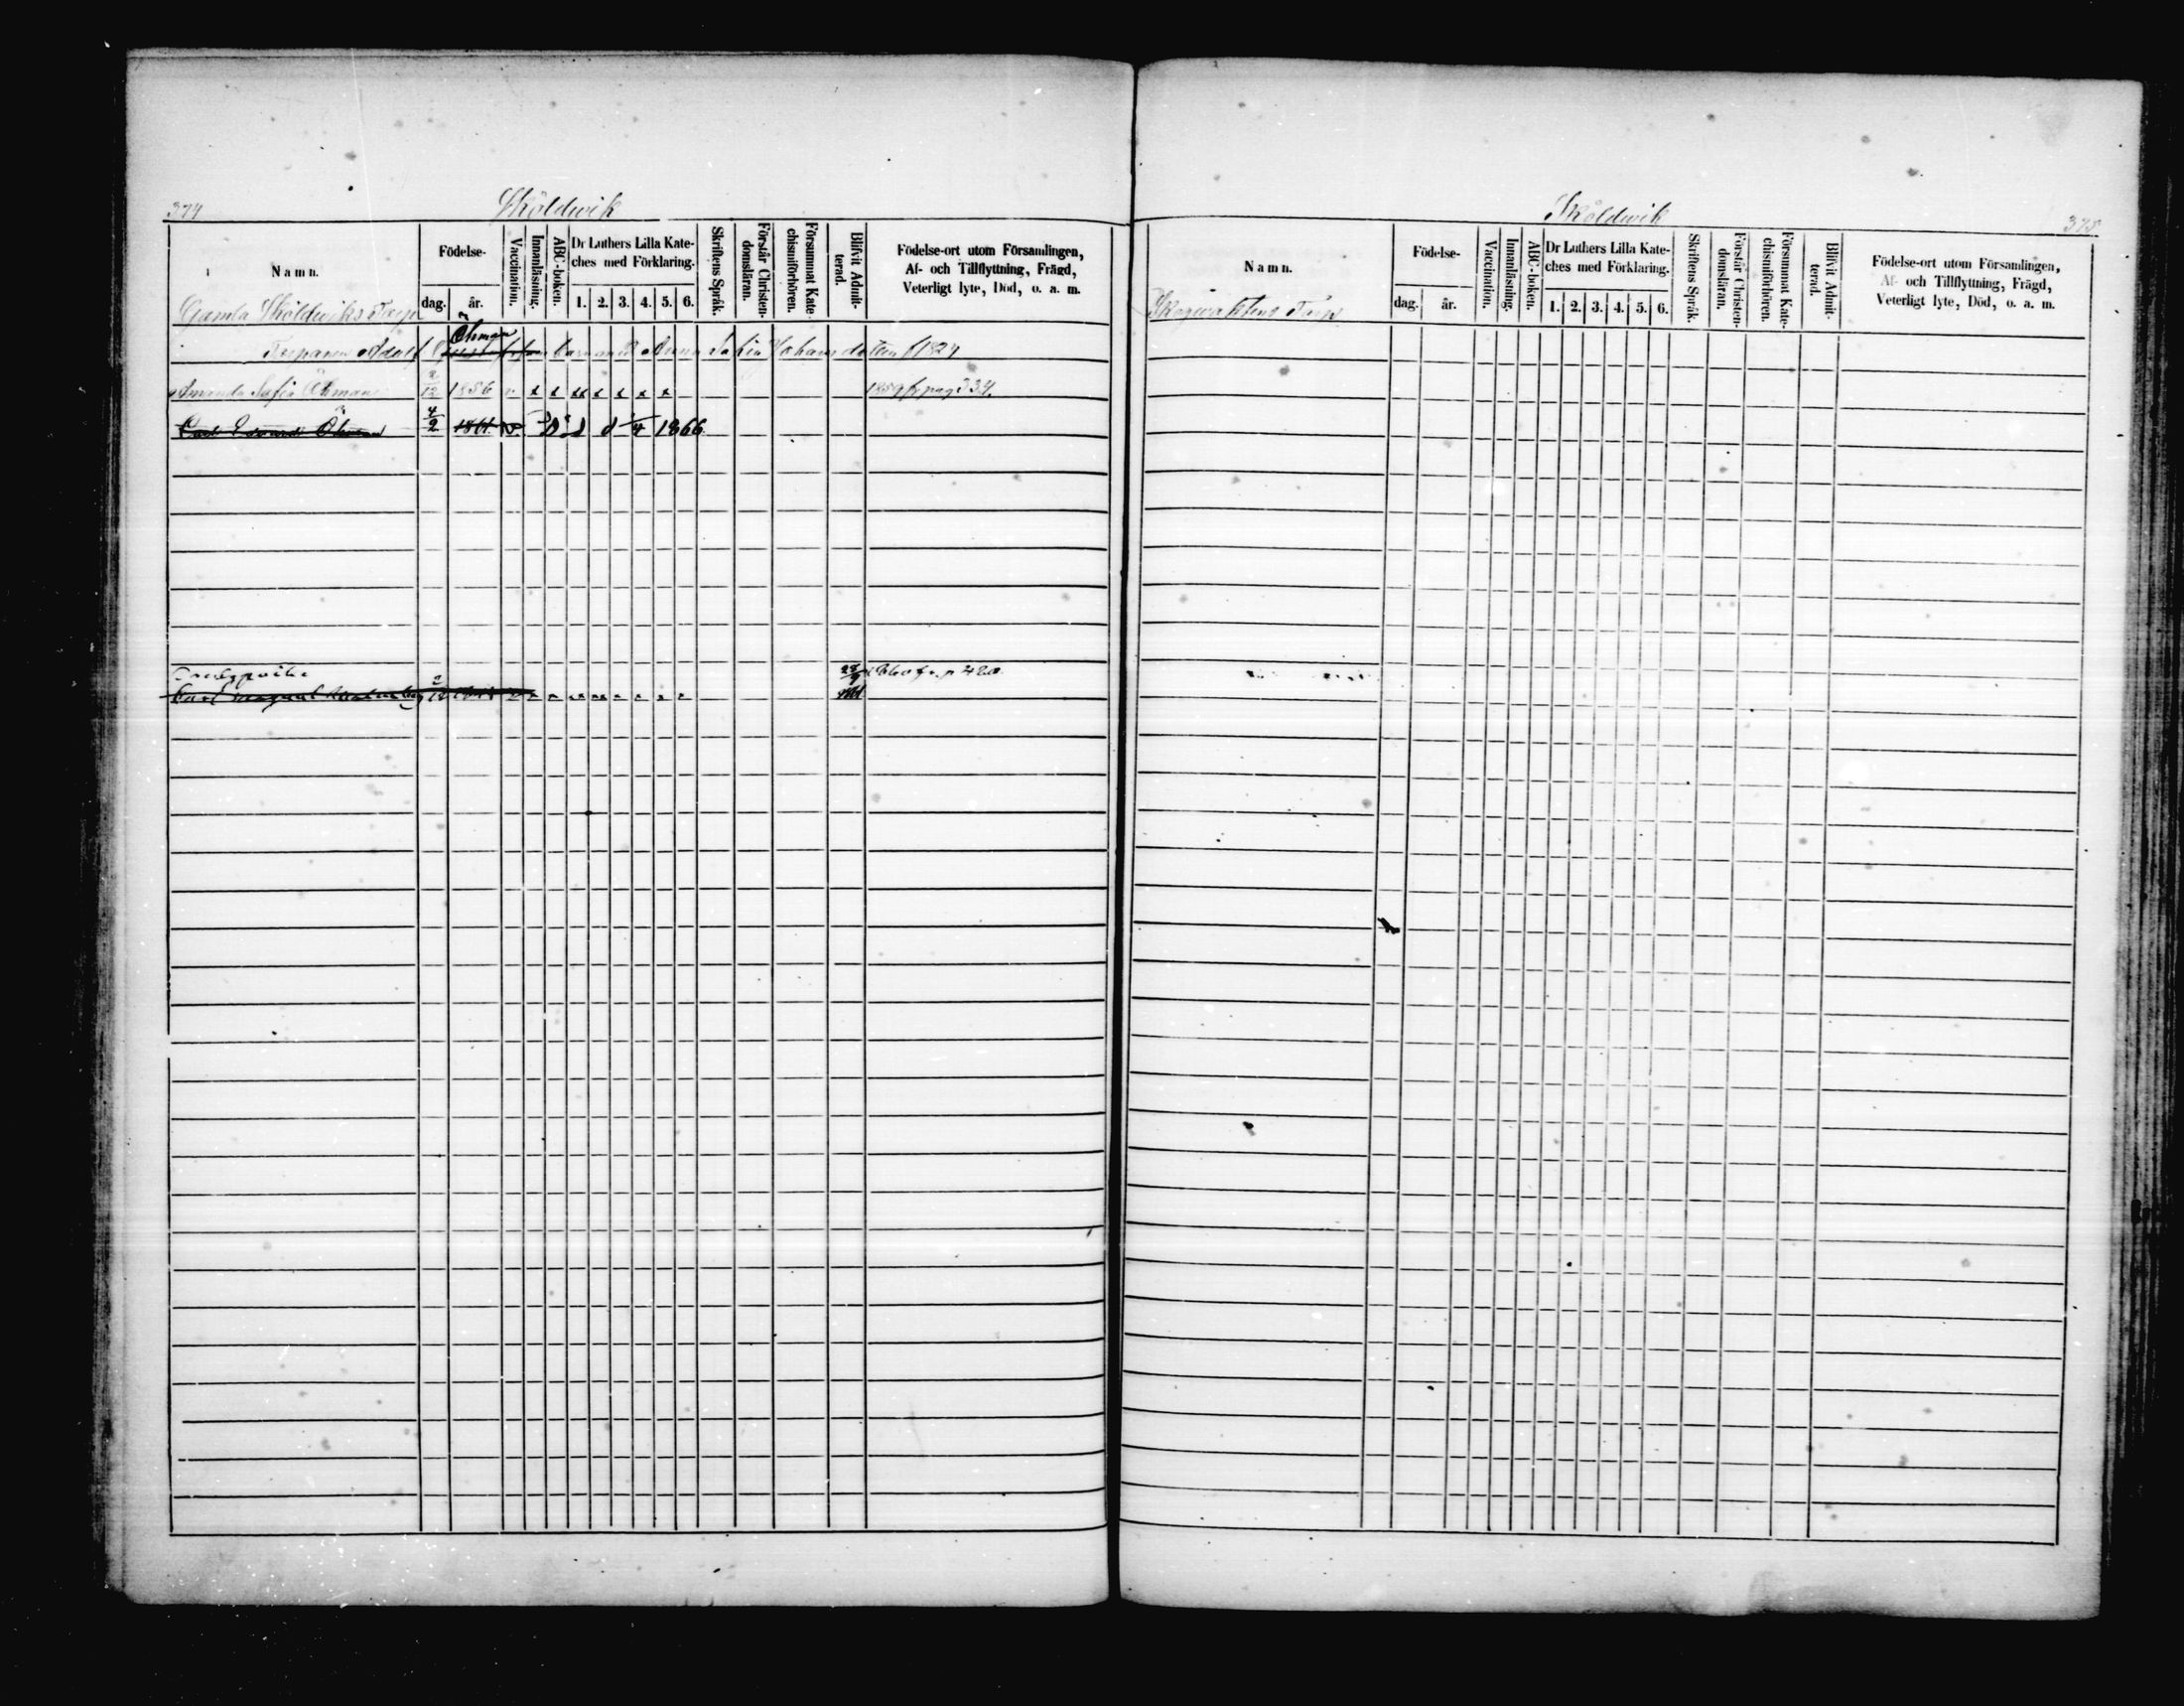 374
Sköldwik
Namn.
Födelse-
dag.
år.
Vaccination.
Innanläsning.
ABC-boken.
Dr Luthers Lilla Kate-
ches med Förklaring.
1. 2. 3. 4. 5. 6.
Skriftens Språk.
Förstår Christen-
domsläran.
Försummat Kate-
chismiförhören.
Blifvit Admit-
terad.
Födelse-ort utom Församlingen,
Af- och Tillflyttning, Frägd,
Veterligt lyte, Död, o. a. m.
Gamla Sköldwiks Torp
Öhman
Torparen Adolf Barn med Anna Sofia Johansdotter f 1824
Amanda Sofia Öhman 2/12 1856 v x x xx x x x x 1859 fr pag 334.
Carl Edvard Öhman 4/2 1861 v. d 4 1866
22/9 fr. p 420
Carl Magnus
Sköldwik
375
Namn.
Födelse-
dag.
år.
Vaccination.
Innanläsning.
ABC-boken.
Dr Luthers Lilla Kate-
ches med Förklaring.
1. 2. 3. 4. 5. 6.
Skriftens Språk.
Förstår Christen-
domsläran.
Försummat Kate-
chismiförhören.
Blifvit Admit-
terad.
Födelse-ort utom Församlingen,
Af- och Tillflyttning, Frägd,
Veterligt lyte, Död, o. a. m.
Skogvaktens Torp